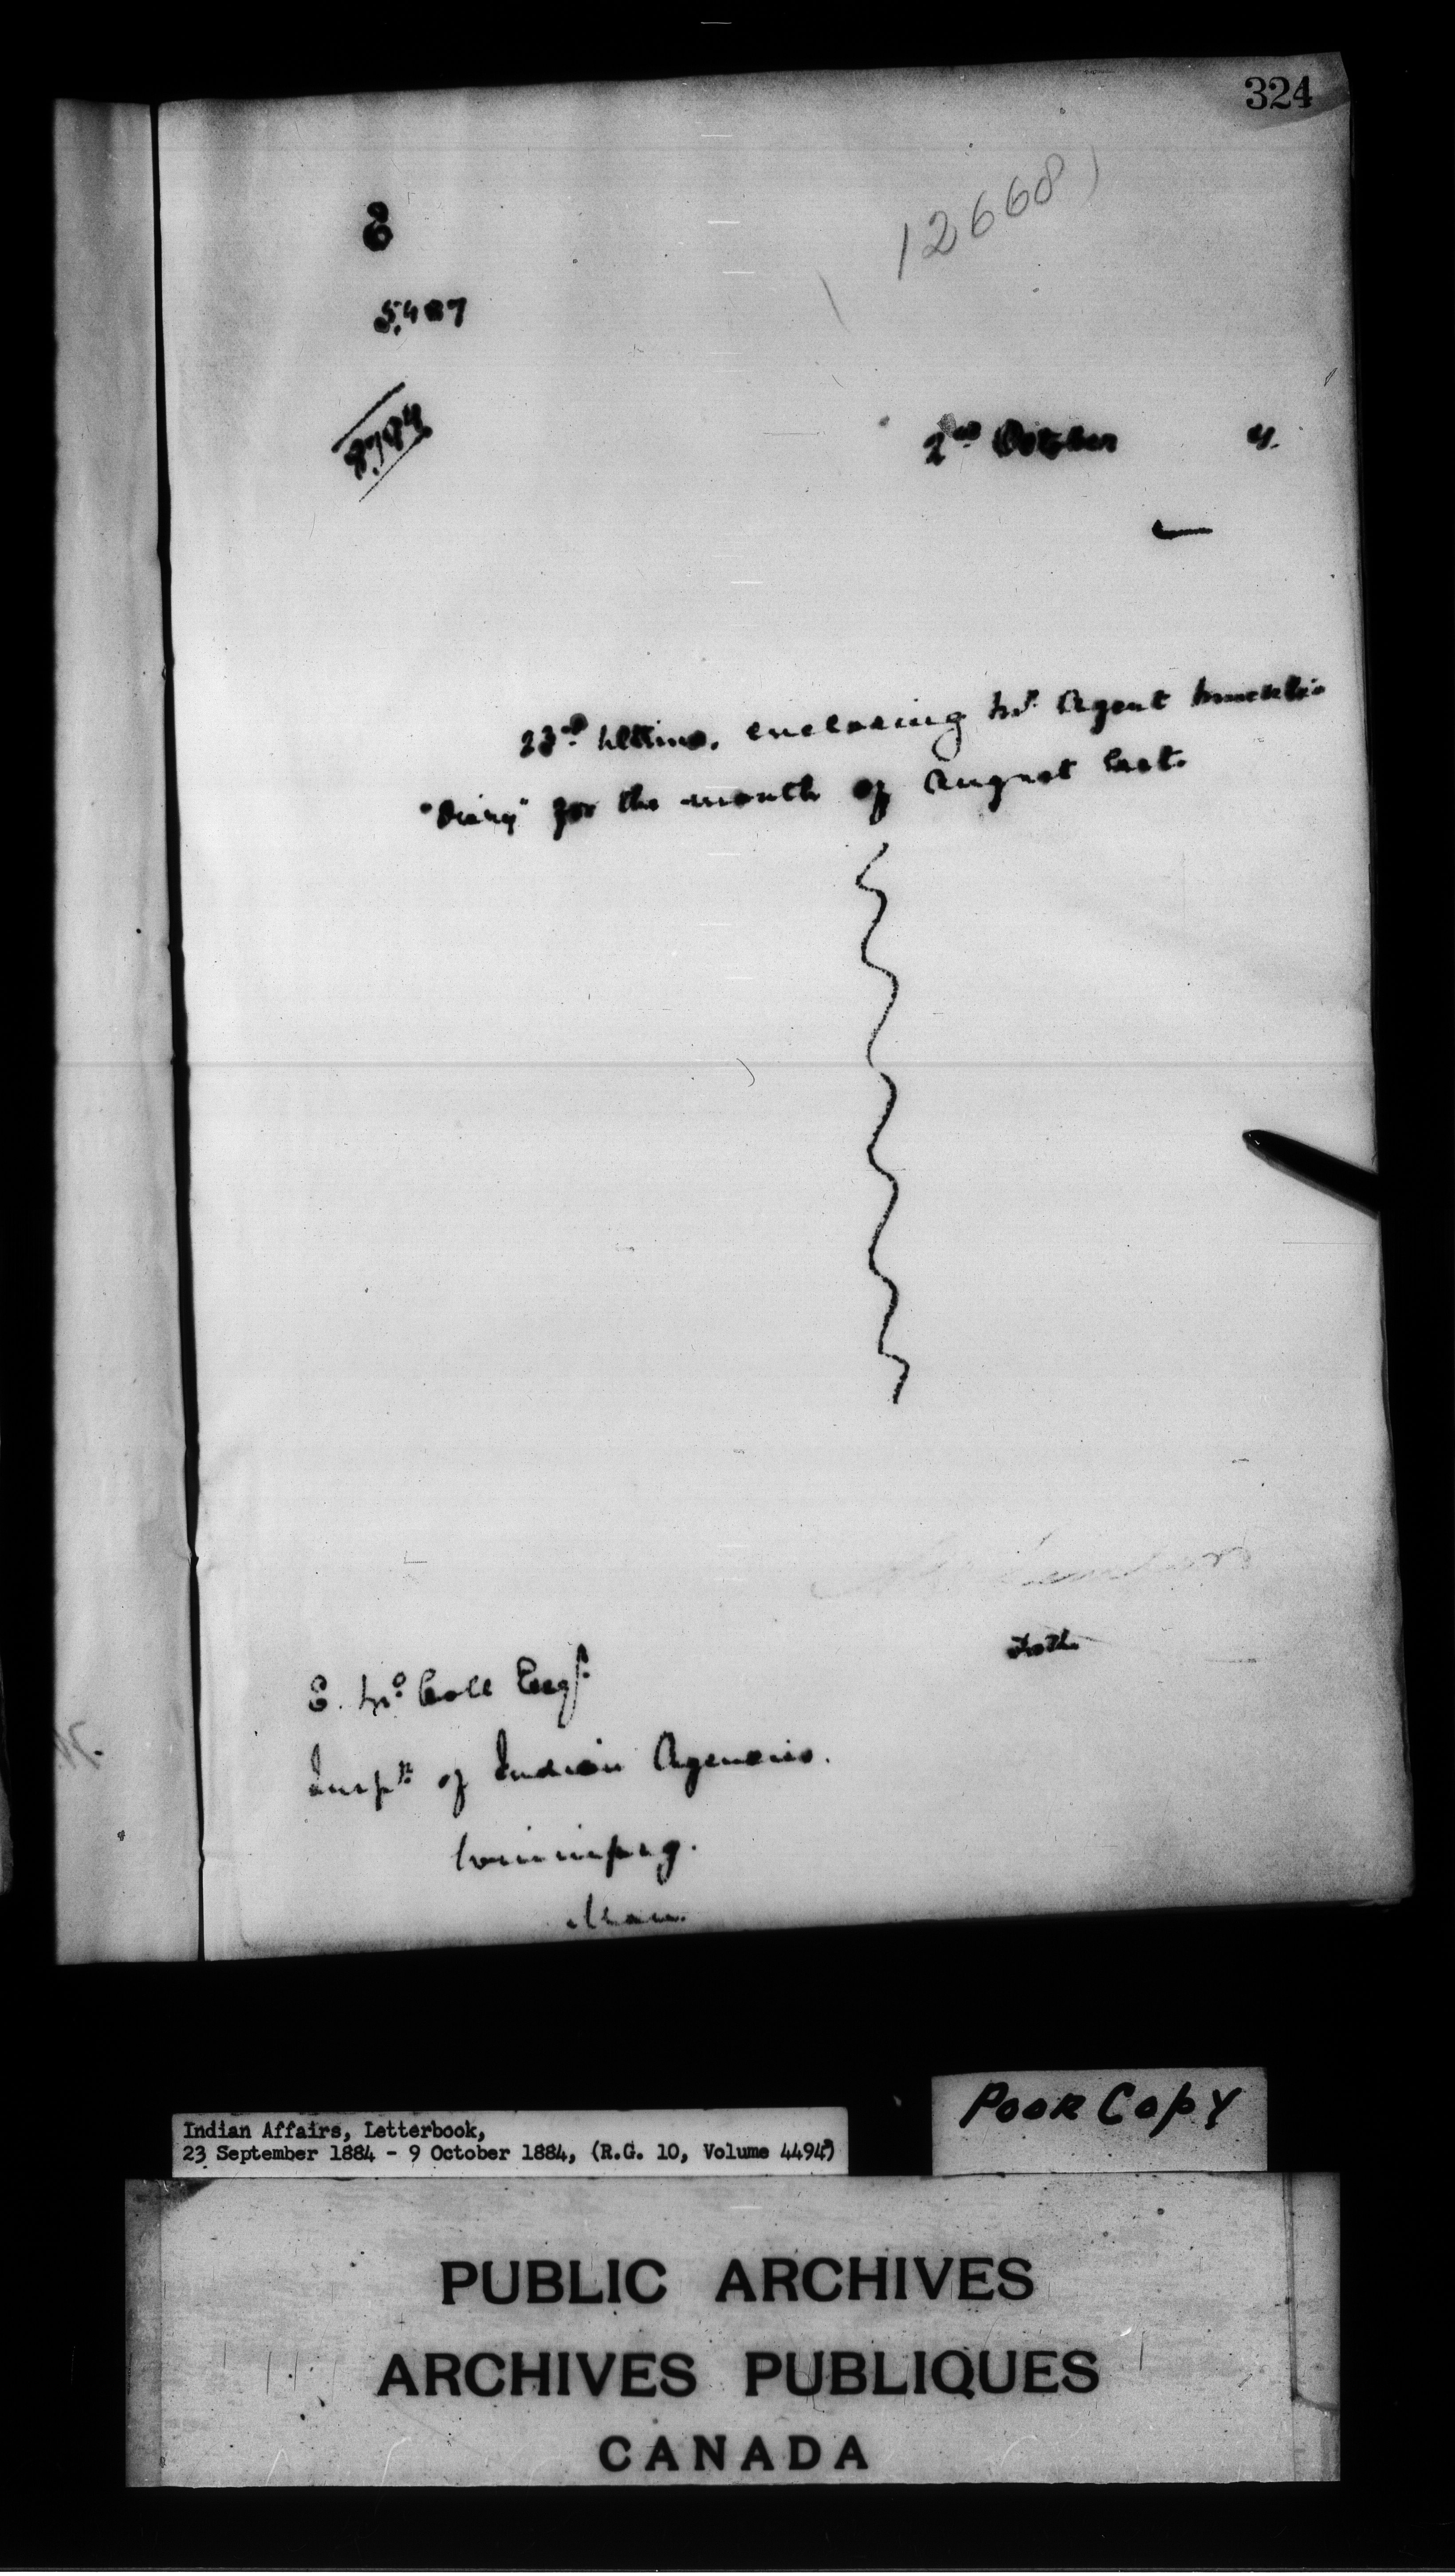 324
12668
E
2nd October 4.
23rd Ultimo, enclosing Mr. Agent Muckle's
"Diary" for the month of August last.
E. McColl Esqr.
Inspr. of Indian Agencies.
Winnipeg.
Man.
Indian Affairs, Letterbook,
23 September 1884 - 9 October 1884, (R.G. 10, Volume 4494)
POOR COPY
PUBLIC ARCHIVES
ARCHIVES PUBLIQUES
CANADA